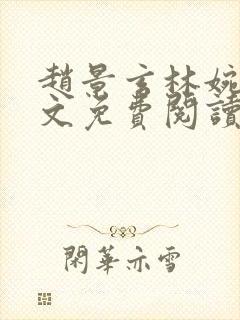 趙景言林婉
文免費閱讀
閑華亦雪